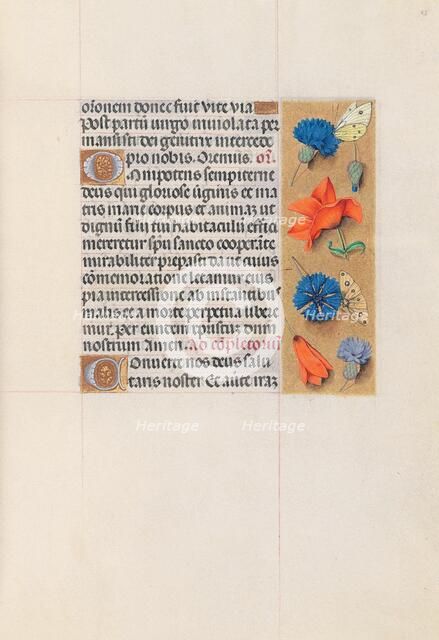 or̄onem donec fuit vite via
Post partū virgo inviolata per
mansisti dei genitrix intercede
pro nobis. Oremus. or̄.
Omnipotens sempiterne
deus qui gloriose v̄ginis et ma
tris marie corpus et animaʒ ut
dignū filij tui habitaculū effici
mereretur spū sancto cooperāte
mirabiliter preparasti da ut cuius
cōmemoratione letamur eius
pia intercessione ab instantibus
malis et a morte perpetua libere
mur. Per eundem cristum dn̄m
nostrum Amen. Ad cōpletoriū
Converte nos deus salu
taris noster Et averte iraʒ
Heritage
Heritage
Heritage
Heritage
Heritage
Heritage